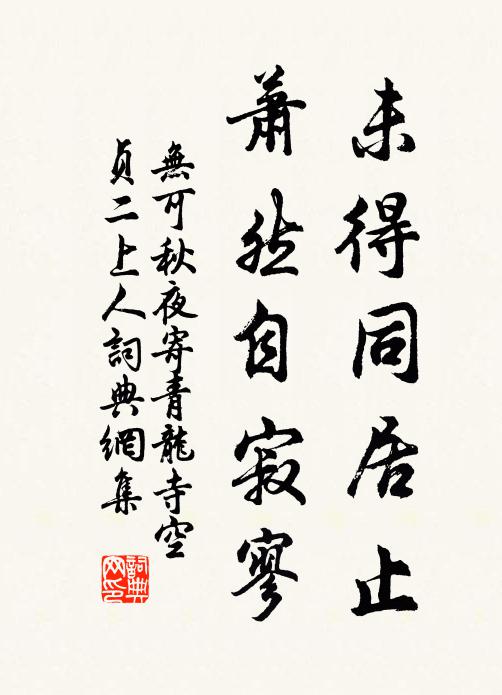 未得同居止
蕭然自寂寥
無可秋夜寄青龍寺空
貞二上人詞典網集
詞典网印